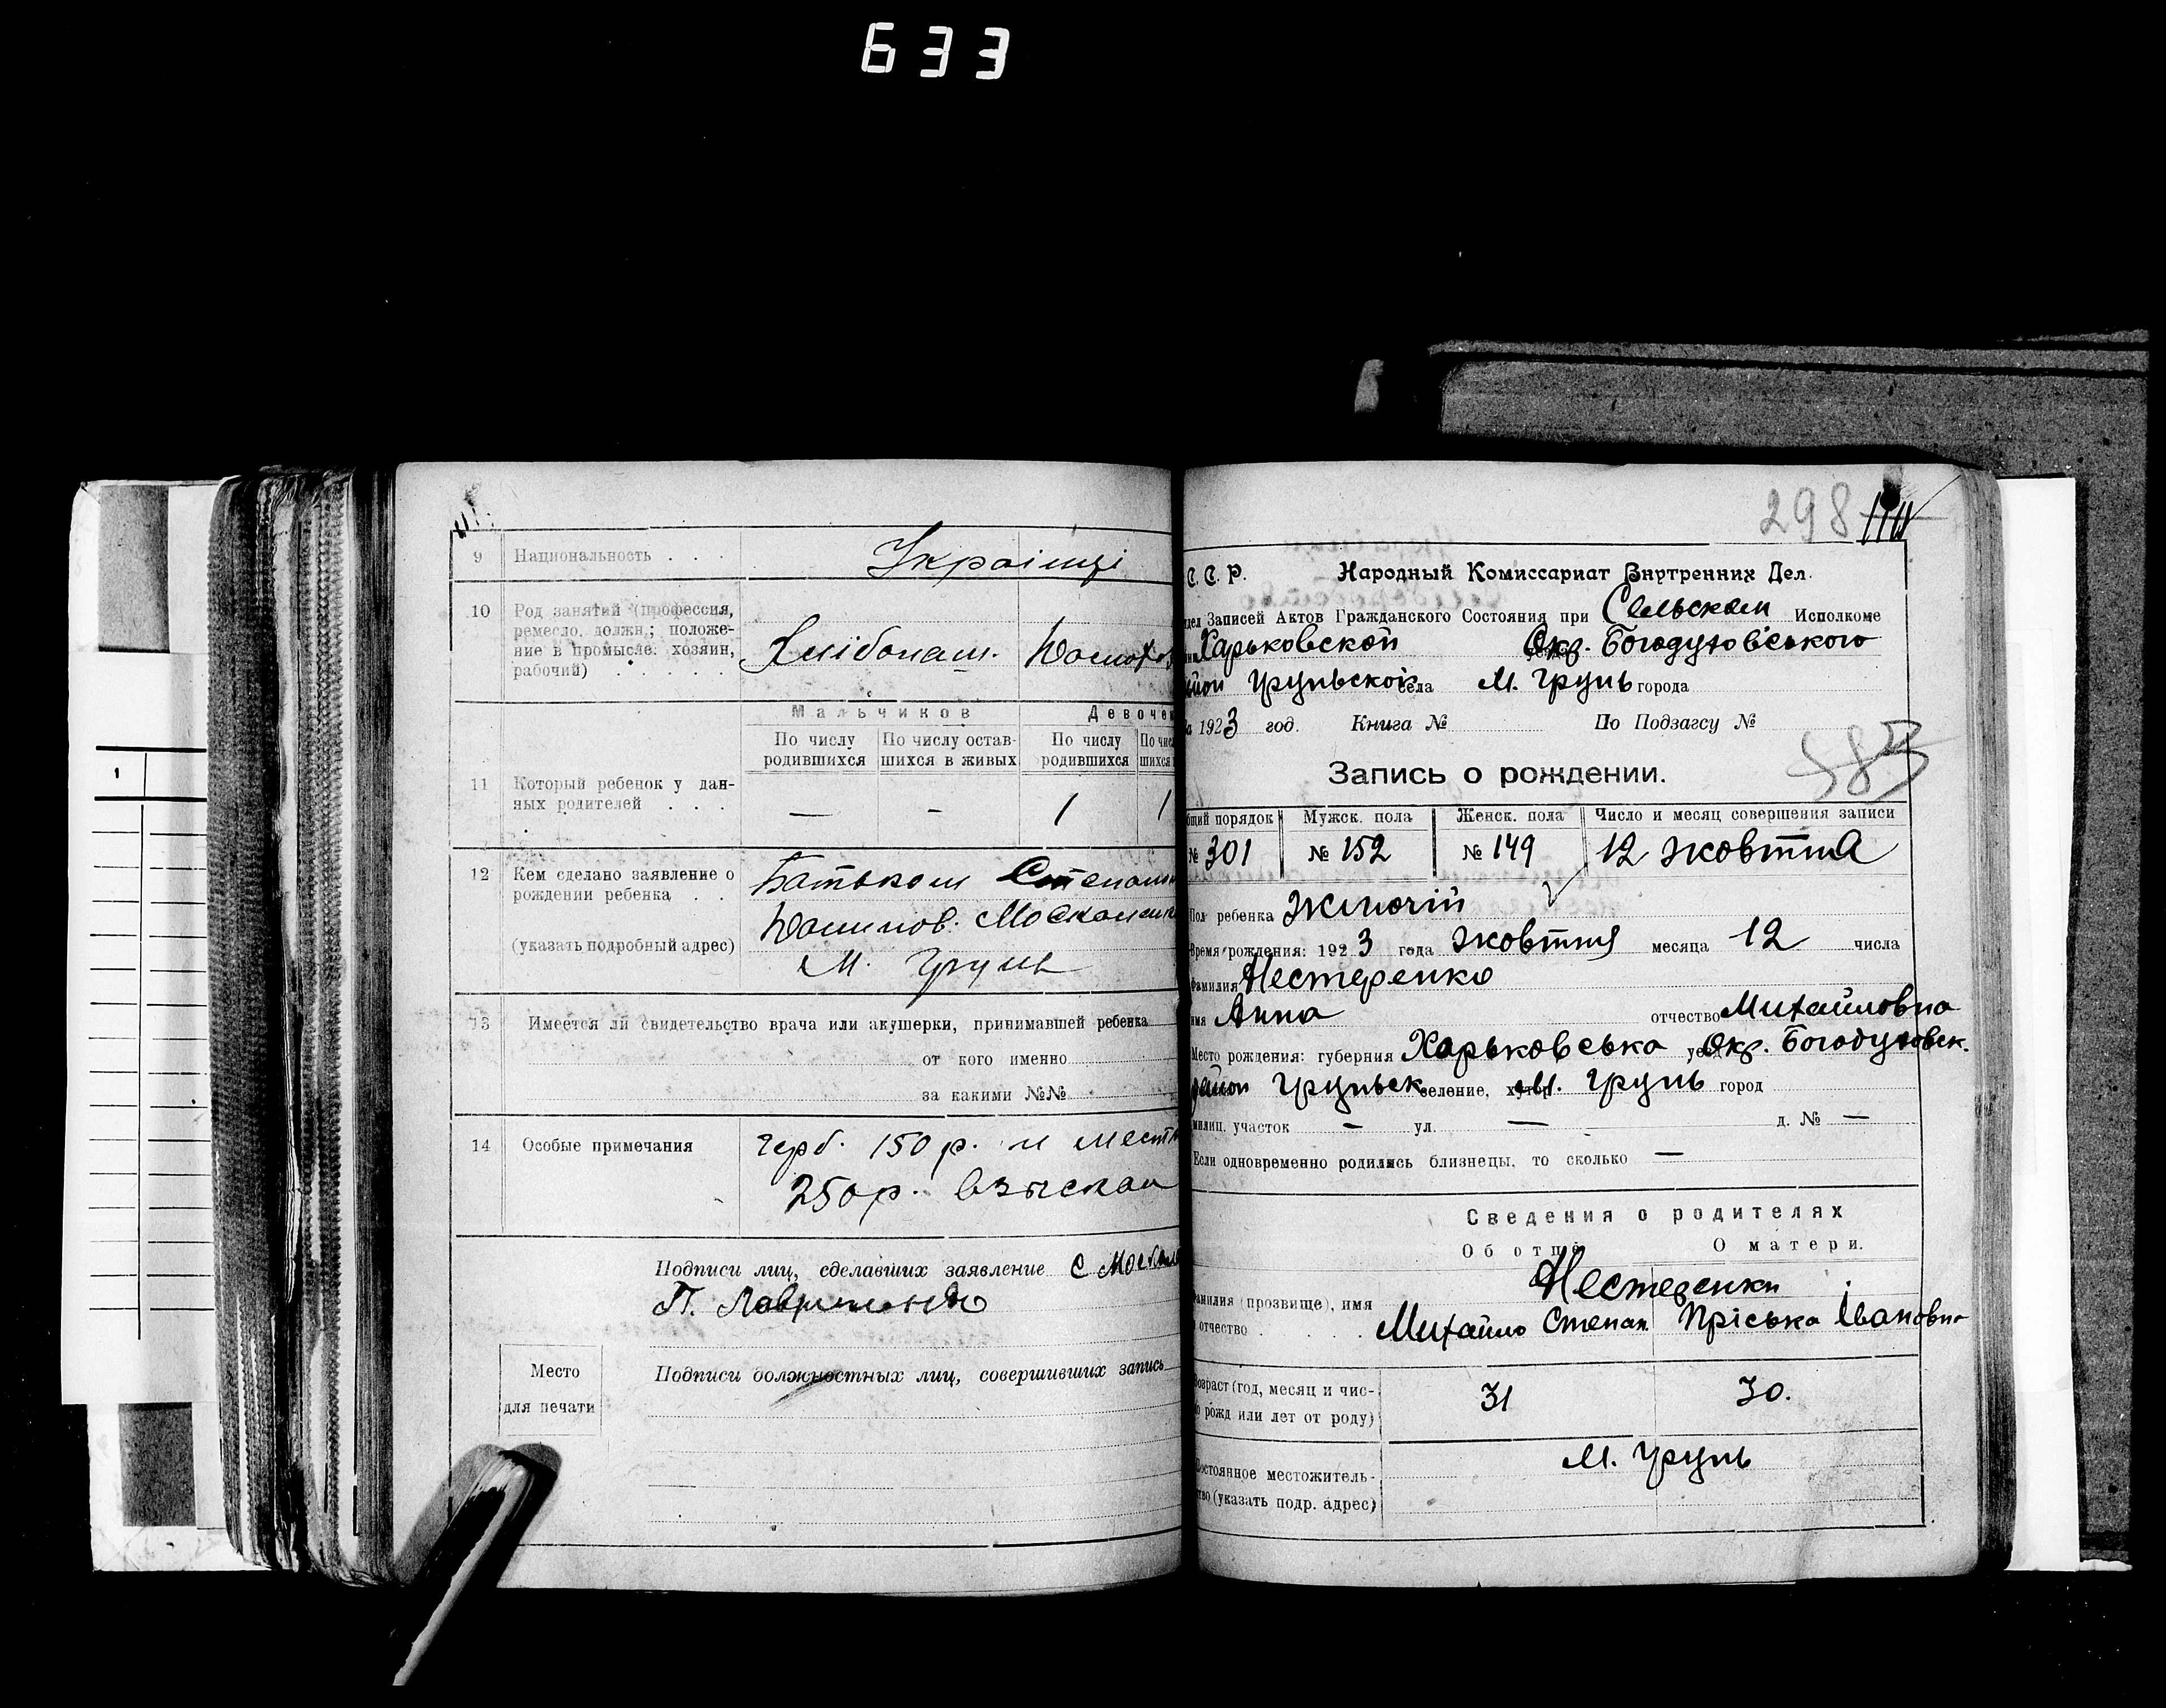 633
9 Национальность . . . Українці
10 Род занятий (профессия,
ремесло, должн.; положе-
ние в промысле: хозяин,
рабочий) . . . . .
Хлібопаш.
Мальчиков Девоче
По числу По числу остав- По числу По чис
родившихся шихся в живых родившихся шихся
11 Который ребенок у дан-
ных родителей . . .
— - 1 1
12 Кем сделано заявление о
рождении ребенка . .
(указать подробный адрес)
Батьком Степаном
Москаленк
М. Грунь
13 Имеется ли свидетельство врача или акушерки, принимавшей ребенка
от кого именно
за какими №№
14 Особые примечания
герб. 150 р. и мест
250 р. взыскан
Подписи лиц, сделавших заявление С Москал
П.
Место
для печати
Подписи должностных лиц, совершивших запись
298
С. С. Р. Народный Комиссариат Внутренних Дел.
дел Записей Актов Гражданского Состояния при Сельском Исполкоме
Харьковской Окр. Богодуховського
айон Груньской села М. Грунь города
а 1923 год. Книга № По Подзагсу №
Запись о рождении.
бщий порядок Мужск. пола Женск. пола Число и месяц совершения записи
№ 301 № 152 № 149 12 жовтня
Пол ребенка Жіночій
Время рождения: 1923 года жовтня месяца 12 числа
Фамилия Нестеренко
имя Анна отчество Михайловна
Место рождения: губерния Харьковська Окр. Богодуховск.
район Груньск селение, хутор М. Грунь город
милиц. участок — ул. — д. № —
Если одновременно родились близнецы, то сколько —
Сведения о родителях
Об отце О матери.
Нестеренки
Фамилия (прозвище), имя
и отчество . . . . Михайло Степан Пріська Івановна
Возраст (год, месяц и чис-
о рожд или лет от роду)
31 30.
М. Грунь
Постоянное местожитель-
тво (указать подр. адрес)